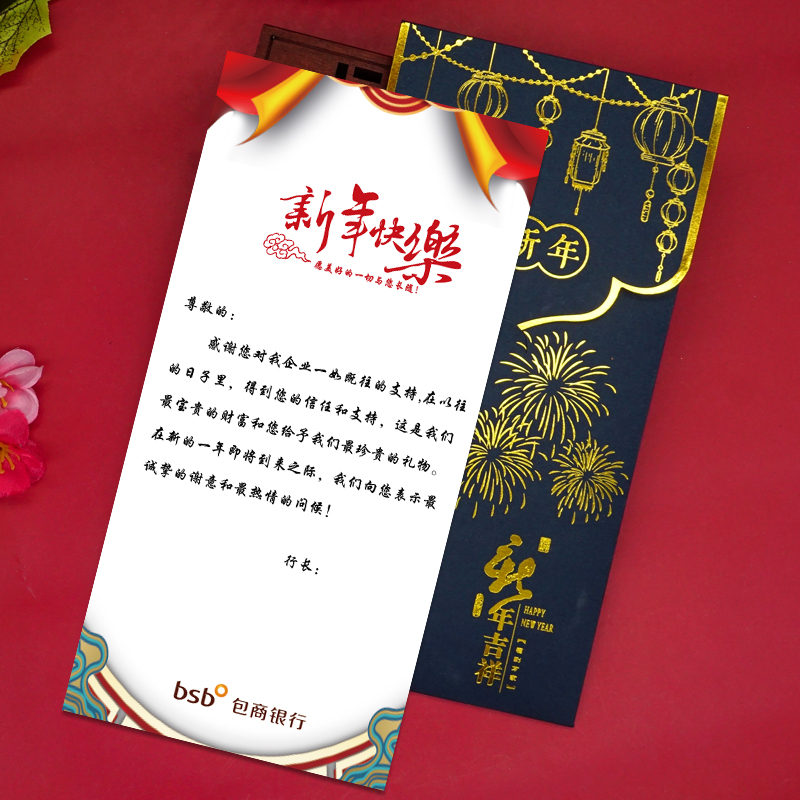 新年快樂
愿美好的一切与您长随！
尊敬的：
感谢您对我企业一如既往的支持,在以往
的日子里，得到您的信任和支持，这是我们
最宝贵的财富和您给予我们最珍贵的礼物。
在新的一年即将到来之际，我们向您表示最
诚挚的谢意和最热情的问候！
行长：
bsb 包商银行
新年
新年吉祥
HAPPY
NEW YEAR